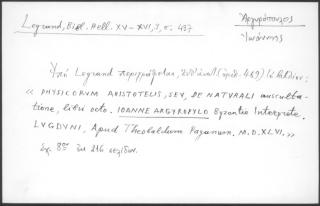 Legrand, Bibl. Hell. XV-XVI, 3, σ. 437
Ἀργυρόπουλος
Ἰωάννης
Ὑπὸ Legrand περιγράφεται, (ἀριθ. 469) τὸ βιβλίον:
« PHYSICORVM ARISTOTELIS, SEV, DE NATVRALI auscultatione, libri octo. IOANNE ARGYROPYLO Byzantio Interprete.
LVGDVNI, Apud Theobaldum Paganum. M.D.XLVI. »
Σχ. 8ον ἐκ 216 σελίδων.